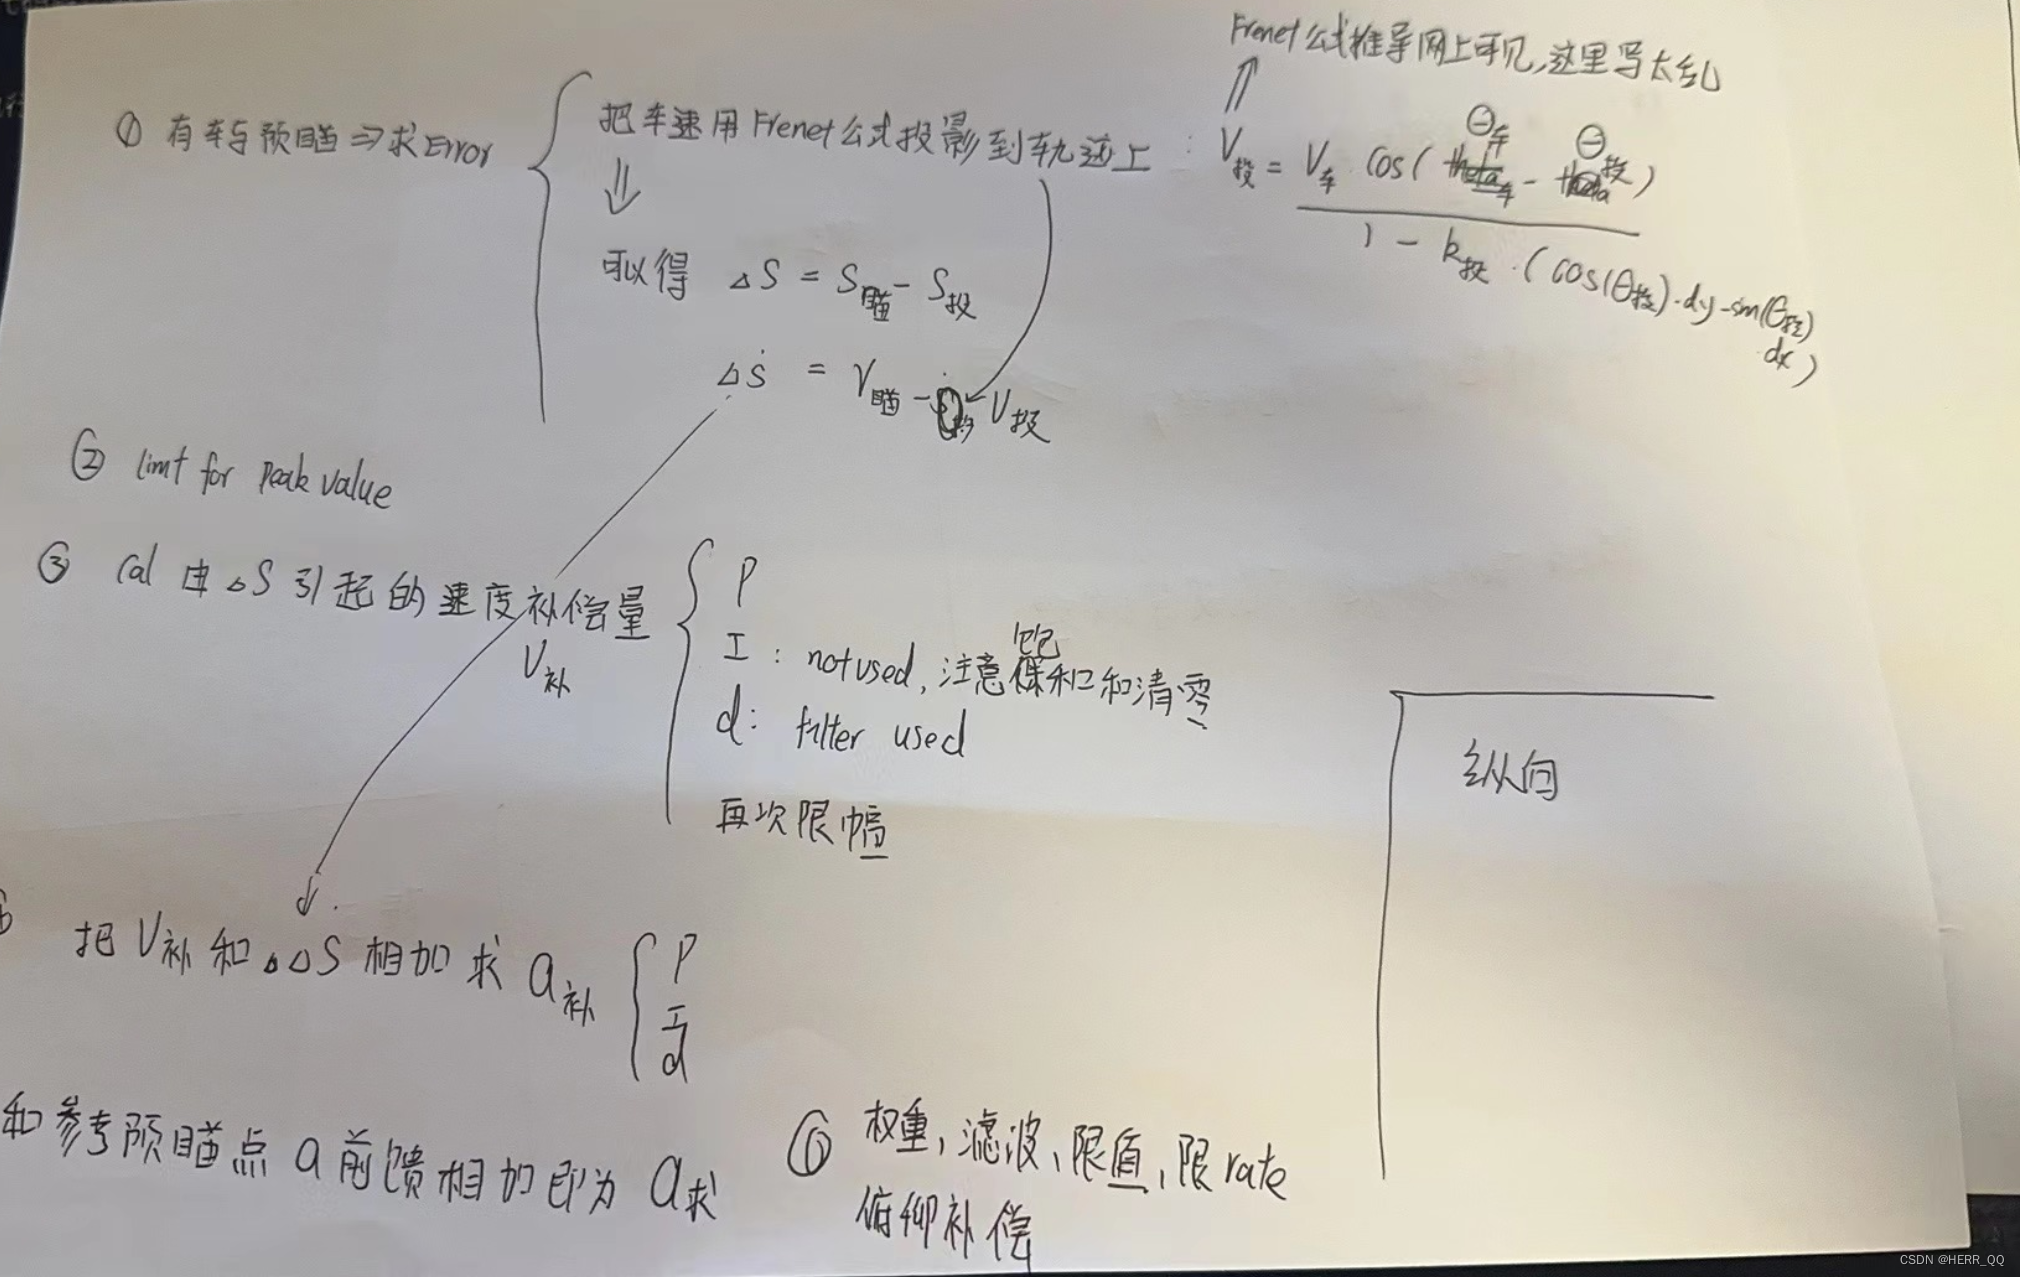 Frenet公式推导网上可见,这里写太乱
① 有车与预瞄⇒求Error
把车速用Frenet公式投影到轨迹上 : V投 = V车 cos(θ车 - θ投) / 1 - k投·(cos(θ投)·dy-sin(θ投)
dx)
可以得 △S = S瞄 - S投
△Ṡ = V瞄 - V投
② limt for peak value
③ cal 由△S引起的速度补偿量
V补
P
I : not used, 注意饱和和清零
d: filter used
再次限幅
纵向
把V补和△△S相加求a补
P
I
d
和参考预瞄点a前馈相加即为a求
⑥ 权重,滤波、限值,限rate
俯仰补偿
CSDN @HERR_QQ